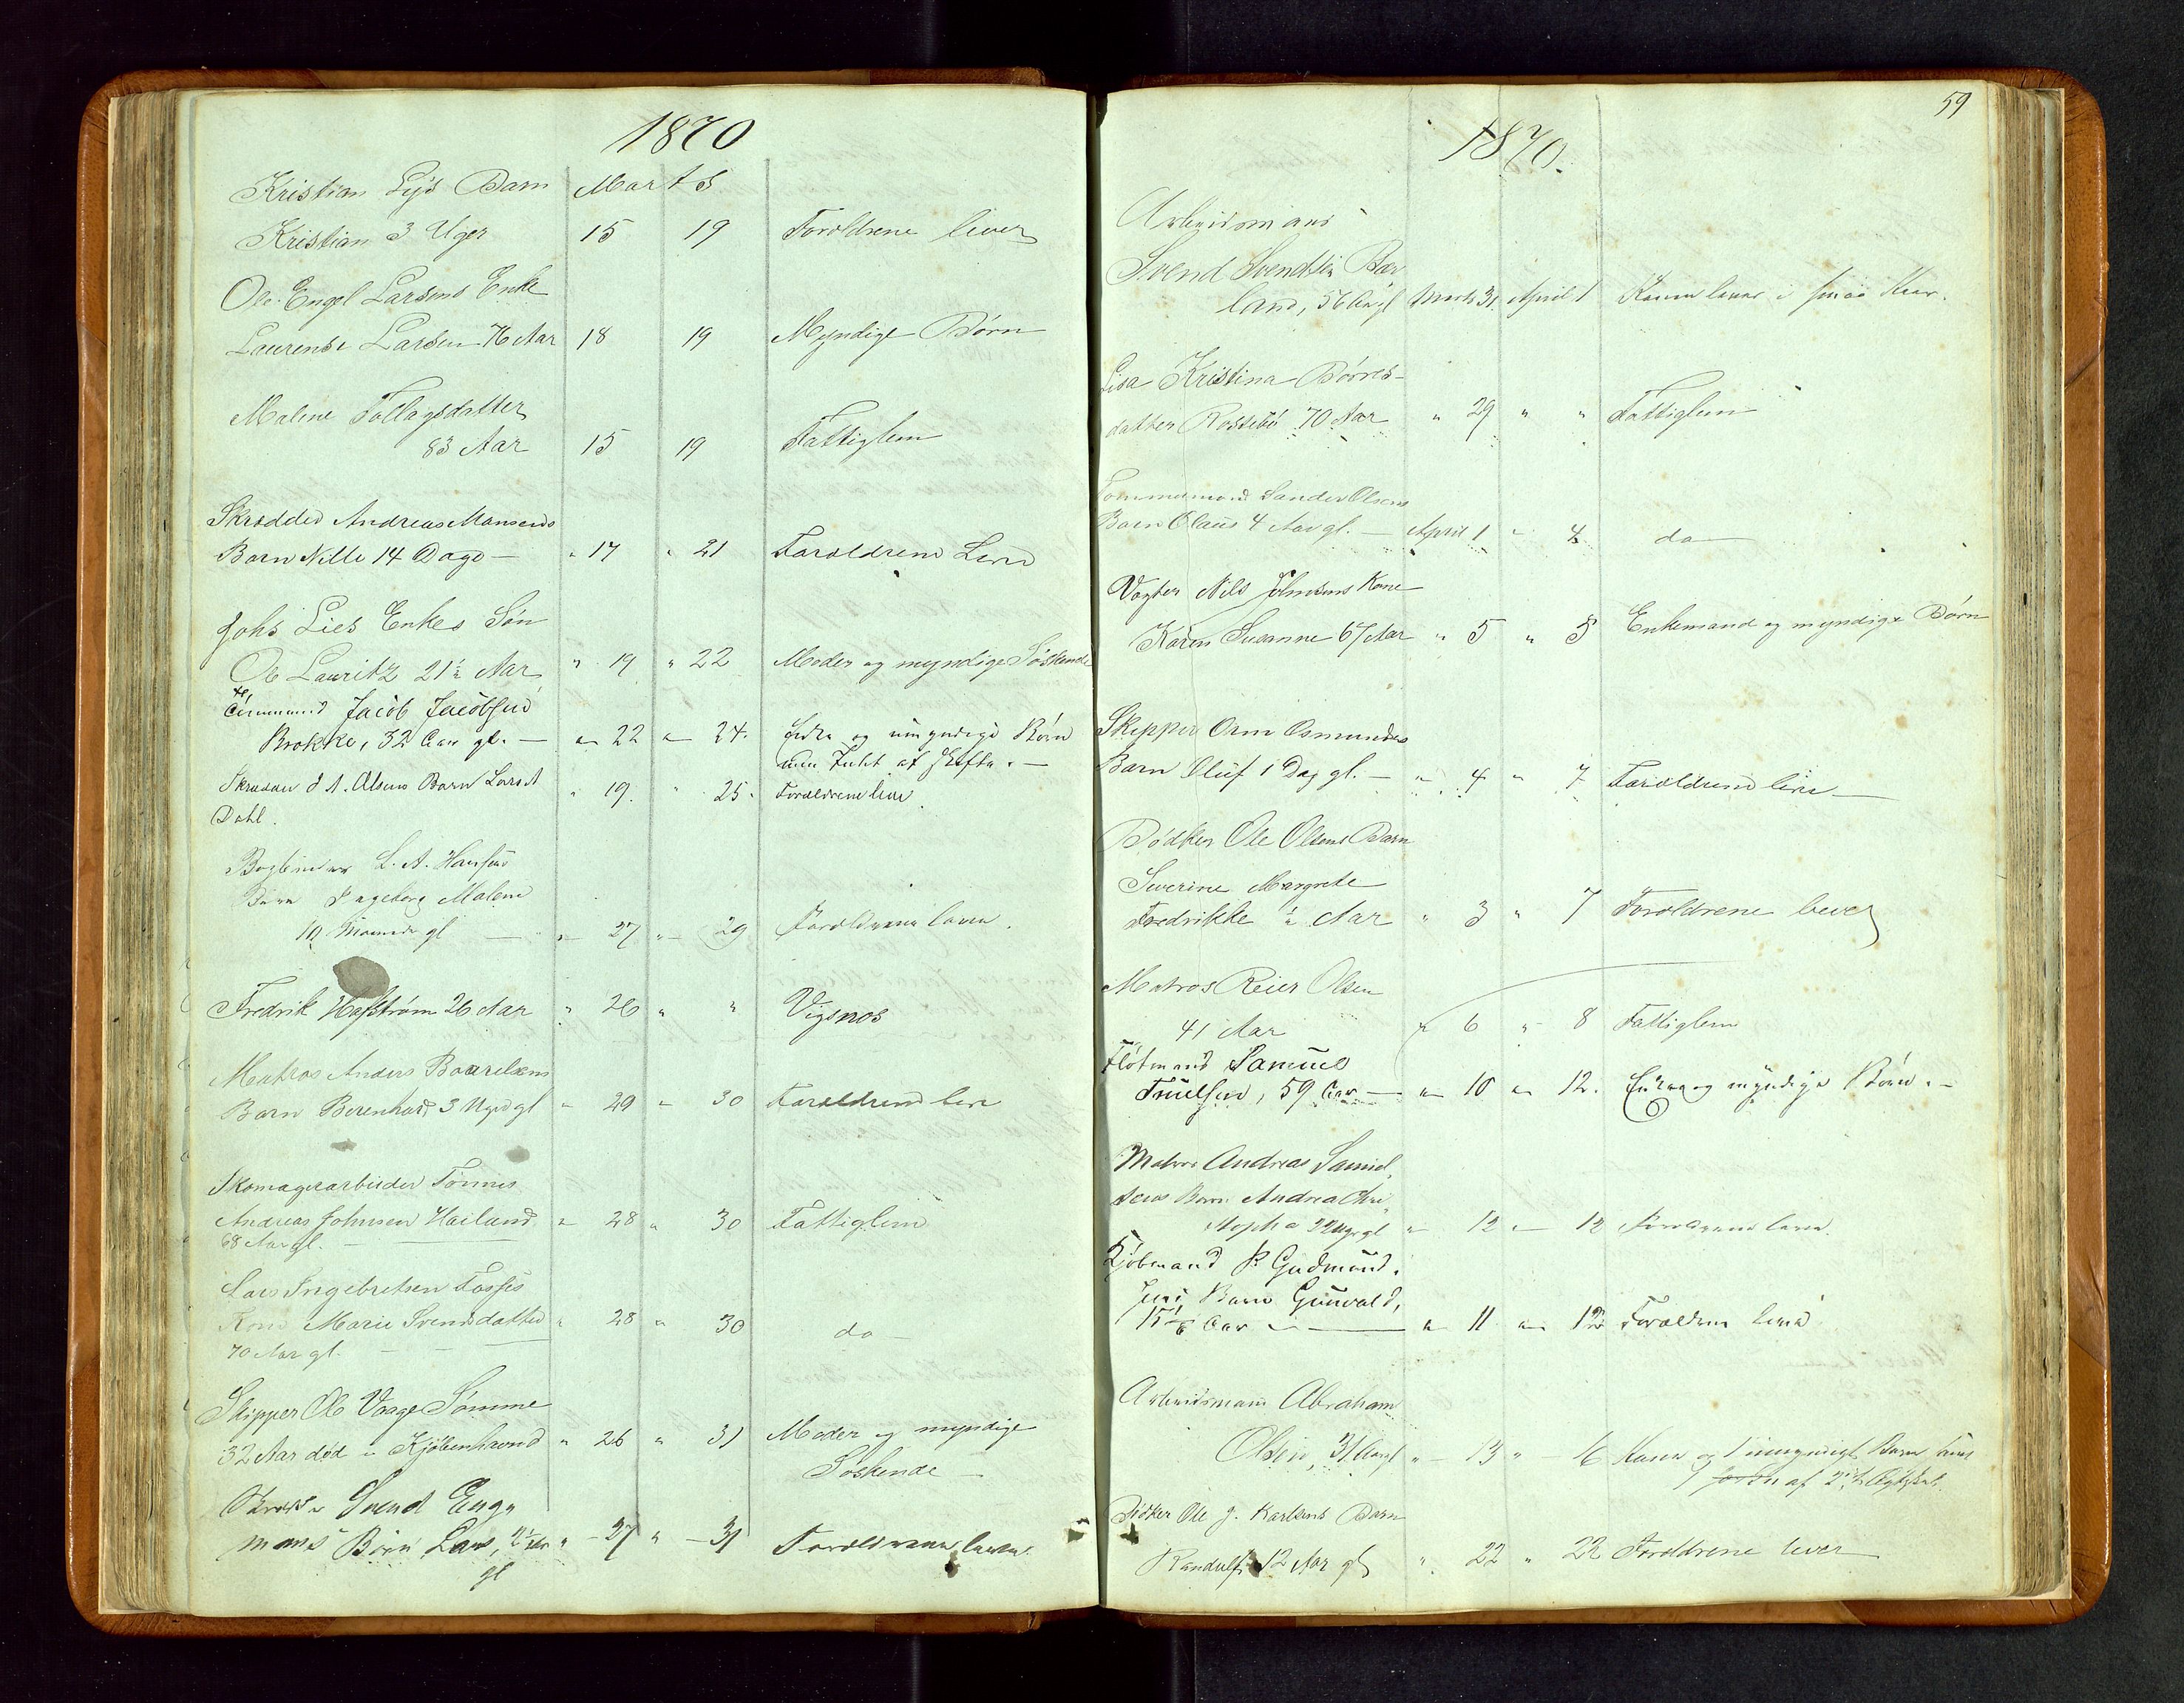 1870
Kristian Lys Barn Marts
Kristian 3 Uger 15 19 Foroldrene lever
Ole Engel Larsens Enke
Laurense Larsen 76 Aar 18 19 Myndige Børn
Malene Tollagsdatter
83 Aar 15 19 Fattiglem
Skrædder Andreas Monsens
Barn Nille 14 Dage — " 17 " 21 Foroldrene Lever
Johs Lies Enkes Søn
Ole Lauritz 21½ Aar " 19 " 22 Moder og myndige Søskende
Jacob Jacobsen
Brokke, 32 Aar gl. — " 22 " 24. Enke og umyndige Børn
af Skifte. —
A. Olsens Barn Lars A " 19. " 25. Foroldrene leve.
Dahl.
Bogbinder L. A. Hansens
Barn Ingeborg Malene
10 Maaneder gl — " 27 " 29 Foroldrene lever.
Fredrik Hafstrøm 26 Aar " 26 " " Vigsnes
Matros Anders Baarelsens
Barn Berenhard 3 Uger gl " 29 " 30 Foroldrene leve
Skomagerarbeider Tønnes
Andreas Johnsen Hailand " 28 " 30 Fattiglem
68 Aar gl. —
Lars Ingebretsen Fosses
Kone Marie Svendsdatter " 28 " 30 do
70 Aar gl. — — —
Skipper Ole Vaage Sømme
32 Aar død i Kjøbenhavn " 26 " 31 Moder og myndige
Søskende —
Svend Enge
mans Barn Lars, " — 27 " — 31 Foroldrene lever.
gl
59
1870.
Arbeidsmand
Svend Svendsen Bør
land, 56 Aar gl Marts 31. April 1 Konen lever i
Lisa Kristina Boores-
datter Rossebø 70 Aar " 29 " " Fattiglem
Tømmermand Sander Olsens
Barn Olaus 4 Aar gl. — April 1 " 4 do
Vogter Nils Johnsens Kone
Karen Susanne 67 Aar " 5 " 5 Enkemand og myndige Børn
Skipper Orm Osmundsens
Barn Oluf 1 Dag gl. — " 4 " 7 Foroldrene leve —
Bødker Ole Olsens Barn
Severine Margrete
Fredrikke ½ Aar " 3 " 7 Foroldrene lever
Matros Reier Olsen
41 Aar " 6 " 8 Fattiglem
Flotmand Samuel
Truelsen, 59 Aar — " 10 " 12. Enke og myndige Børn. —
Matros Andreas Samuel
sens Barn Andrea Chri
" 12 " 12 Foroldrene lever.
Kjøbmand P. Gudmund-
sens Barn Gunvald,
Aar — " 11 " 12 Foroldrene lever
Arbeidsmand Abraham
Olsen, 31 Aar gl " — 13 " — 16 Konen og 1 umyndigt Barn
af 2det Ægteskab.
Bødker Ole J. Karlsens Barn
Randulf 12 Aar gl " 22 " 22 Foroldrene lever